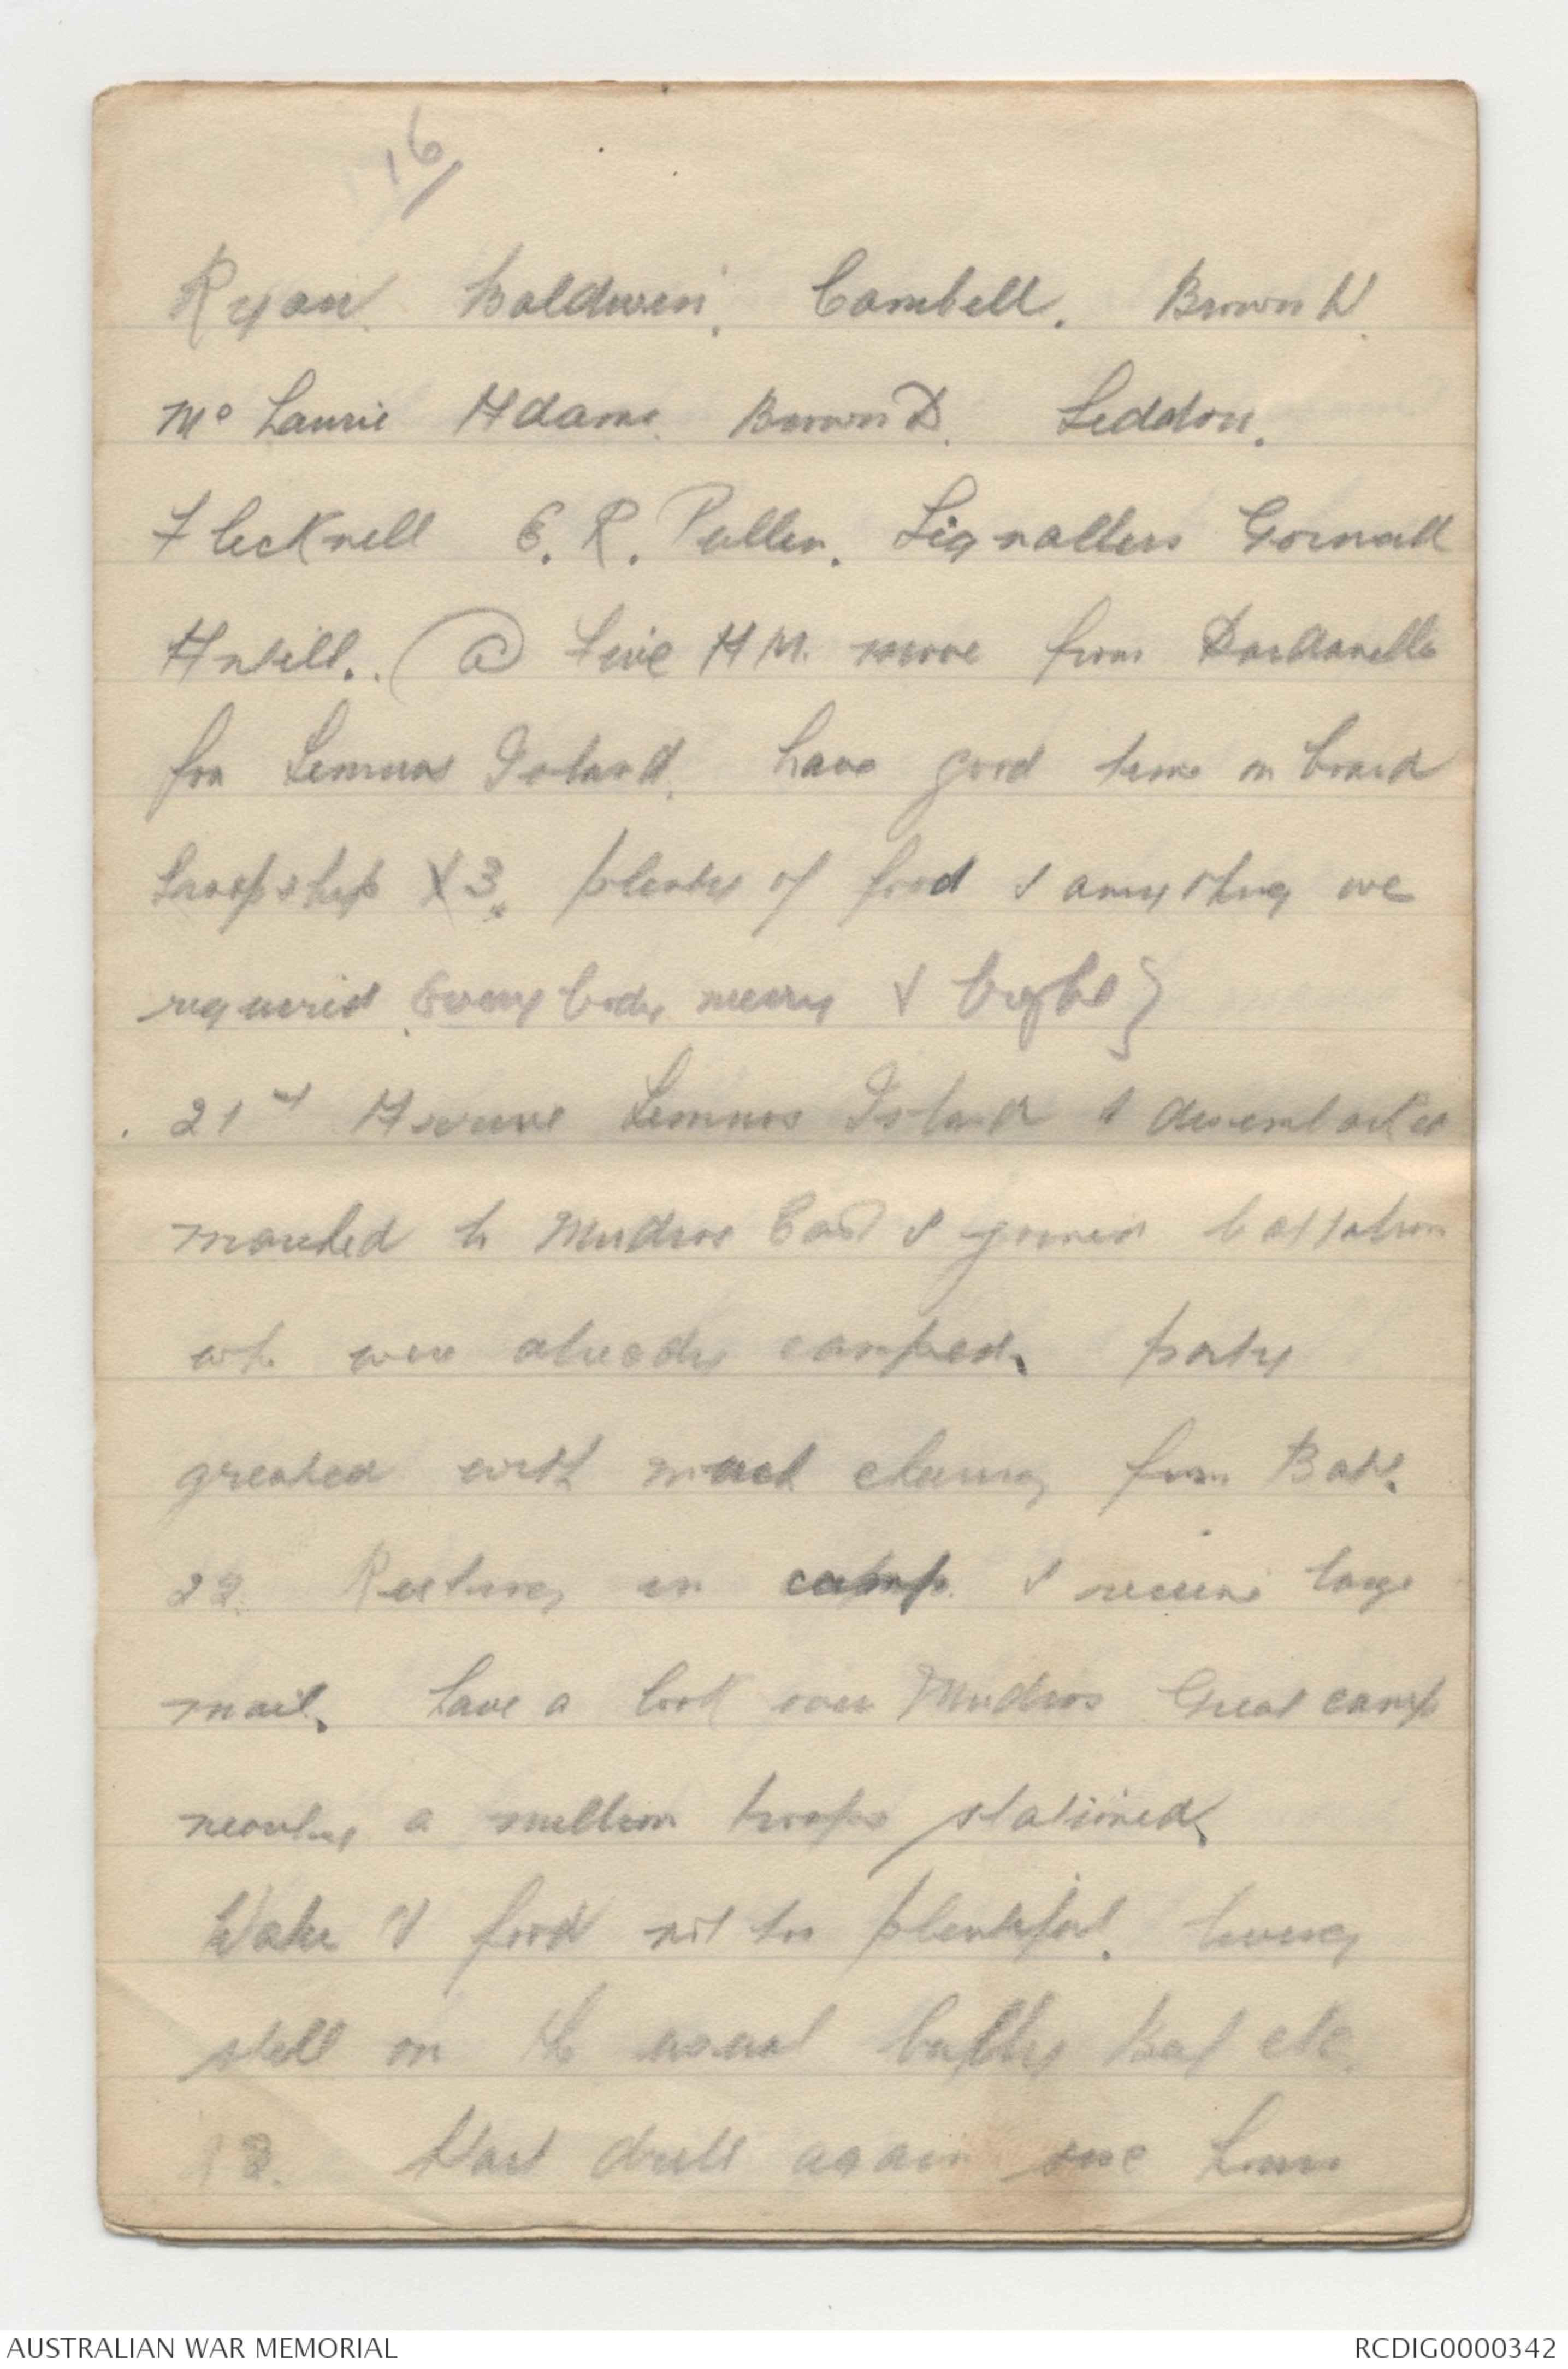 16/
Ryan. Baldwin. Cambell. Brown W.
Mc Laurie Adams. Brown D. Seddon.
Flecknell E. R. Pullen. Signallers Gornall
Antill.. @ Five AM. move from Dardanells
for Lemnos Island. have good time on board
troopship X3. plenty of food & anything we
required. Every body merry & bright}
21st Arrive Lemnos Island & disembarked
marched to Mudros East & joined battalion
who were already camped. party
greated with much cheering from Batt.
22. Resting in camp. & receive large
mail. have a look over Mudros Great camp
nearly a million troops stationed.
Water & food not too plentiful. living
still on the usual bully beef etc.
Start drill again